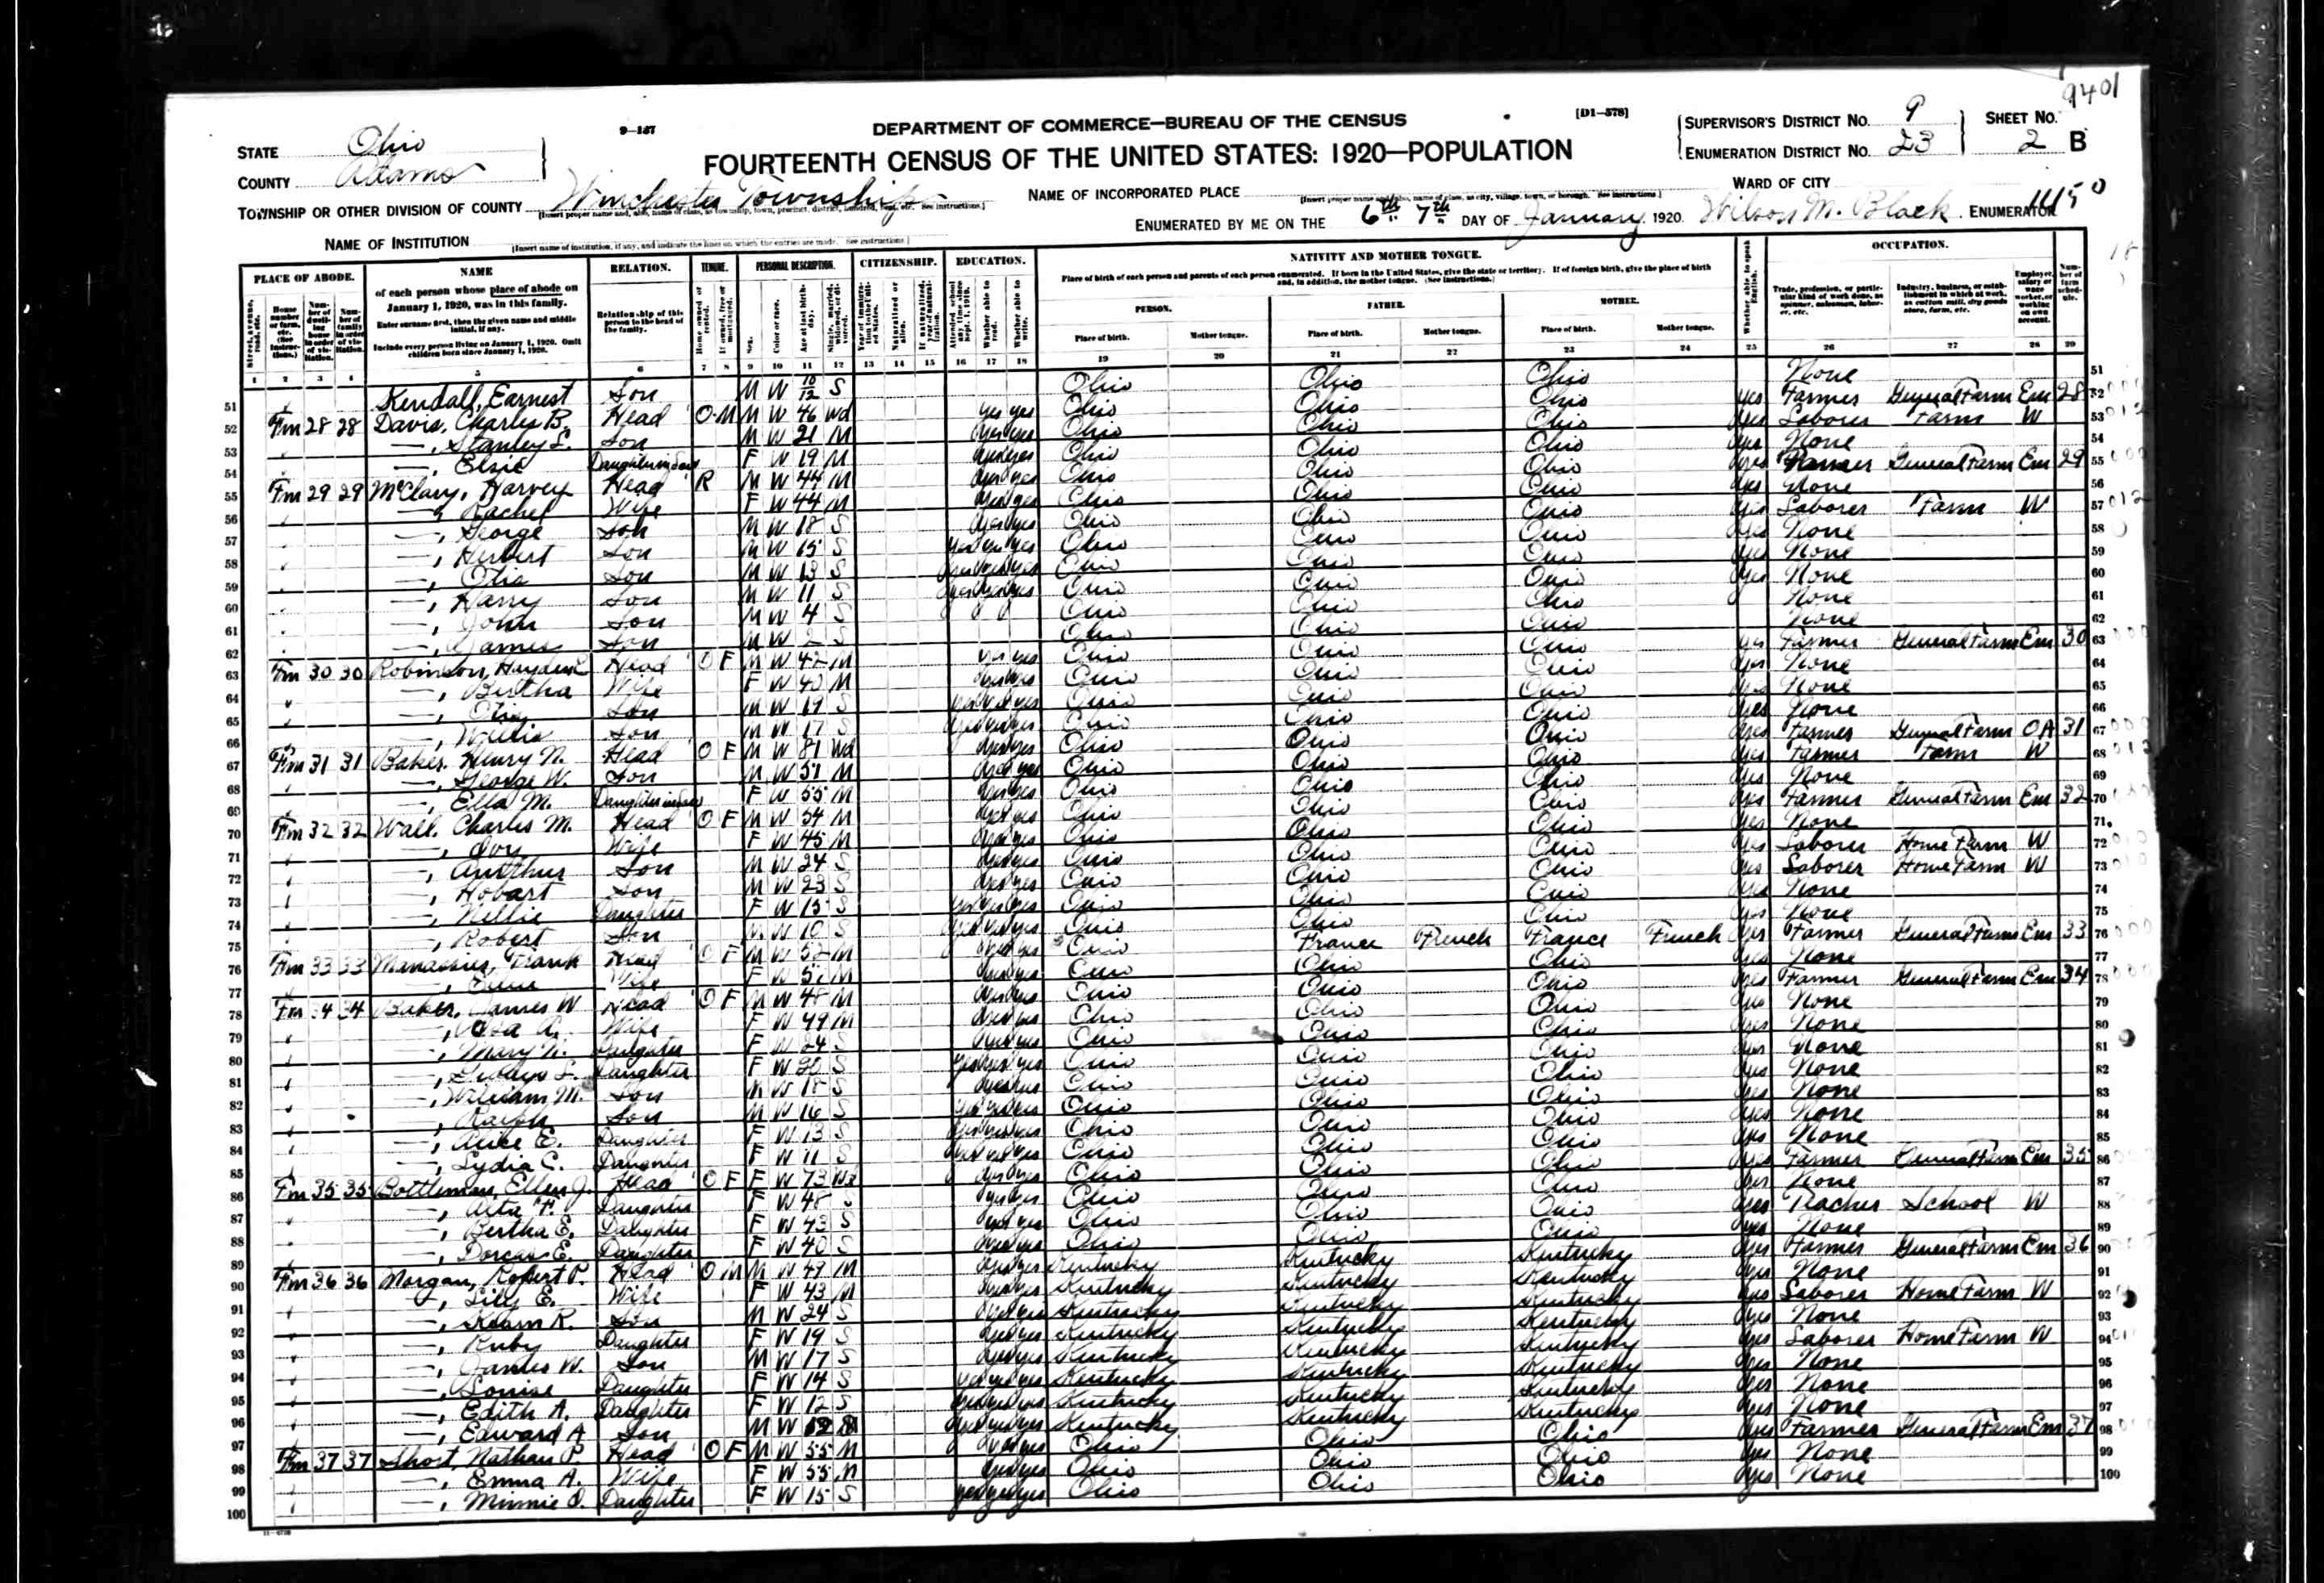 9401
STATE Ohio
9-137
DEPARTMENT OF COMMERCE—BUREAU OF THE CENSUS
[D1-578]
SUPERVISOR'S DISTRICT No. 9
SHEET No.
COUNTY Adams
FOURTEENTH CENSUS OF THE UNITED STATES: 1920—POPULATION
ENUMERATION DISTRICT No. 23
2 B
TOWNSHIP OR OTHER DIVISION OF COUNTY Winchester Township
NAME OF INCORPORATED PLACE
WARD OF CITY
NAME OF INSTITUTION
ENUMERATED BY ME ON THE 6th 7th DAY OF January, 1920. Wilson M. Black, ENUMERATOR
PLACE OF ABODE. NAME RELATION. TENURE. PERSONAL DESCRIPTION. CITIZENSHIP. EDUCATION. NATIVITY AND MOTHER TONGUE. OCCUPATION.
of each person whose place of abode on January 1, 1920, was in this family.
Enter surname first, then the given name and middle initial, if any.
Include every person living on January 1, 1920. Omit children born since January 1, 1920.
Relationship of this person to the head of the family.
Place of birth of each person and parents of each person enumerated. If born in the United States, give the state or territory. If of foreign birth, give the place of birth and, in addition, the mother tongue. (See Instructions.)
PERSON. FATHER. MOTHER.
Place of birth. Mother tongue. Place of birth. Mother tongue. Place of birth. Mother tongue.
1 2 3 4 5 6 7 8 9 10 11 12 13 14 15 16 17 18 19 20 21 22 23 24 25 26 27 28 29
51 Kendall, Earnest Son M W 10/12 S Ohio Ohio Ohio None 51
52 Fm 28 28 Davis, Charles B. Head O M M W 46 Wd yes yes Ohio Ohio Ohio yes Farmer General Farm Em 28 52
53 —, Stanley S. Son M W 21 M yes yes Ohio Ohio Ohio yes Laborer Farm W 53
54 —, Elsie Daughter in Law F W 19 M yes yes Ohio Ohio Ohio yes None 54
55 Fm 29 29 McClary, Harvey Head R M W 44 M yes yes Ohio Ohio Ohio yes Farmer General Farm Em 29 55
56 —, Rachel Wife F W 44 M yes yes Ohio Ohio Ohio yes None 56
57 —, George Son M W 18 S yes yes Ohio Ohio Ohio yes Laborer Farm W 57
58 —, Herbert Son M W 15 S yes yes yes Ohio Ohio Ohio yes None 58
59 —, Otis Son M W 13 S yes yes yes Ohio Ohio Ohio yes None 59
60 —, Harry Son M W 11 S yes yes yes Ohio Ohio Ohio yes None 60
61 —, John Son M W 4 S Ohio Ohio Ohio None 61
62 —, James Son M W 2 S Ohio Ohio Ohio None 62
63 Fm 30 30 Robinson, Head O F M W 42 M yes yes Ohio Ohio Ohio yes Farmer General Farm Em 30 63
64 —, Bertha Wife F W 40 M yes yes Ohio Ohio Ohio yes None 64
65 —, Otis Son M W 19 S yes yes yes Ohio Ohio Ohio yes None 65
66 —, Willis Son M W 17 S yes yes yes Ohio Ohio Ohio yes None 66
67 Fm 31 31 Baker, Henry N. Head O F M W 81 Wd yes yes Ohio Ohio Ohio yes Farmer General Farm OA 31 67
68 —, George W. Son M W 57 M yes yes Ohio Ohio Ohio yes Farmer Farm W 68
69 —, Ella M. Daughter in Law F W 55 M yes yes Ohio Ohio Ohio yes None 69
70 Fm 32 32 Wall, Charles M. Head O F M W 54 M yes yes Ohio Ohio Ohio yes Farmer General Farm Em 32 70
71 —, Ivy Wife F W 45 M yes yes Ohio Ohio Ohio yes None 71
72 —, Son M W 24 S yes yes Ohio Ohio Ohio yes Laborer Home Farm W 72
73 —, Hobart Son M W 23 S yes yes Ohio Ohio Ohio yes Laborer Home Farm W 73
74 —, Nellie Daughter F W 15 S yes yes yes Ohio Ohio Ohio yes None 74
75 —, Robert Son M W 10 S yes yes yes Ohio Ohio Ohio yes None 75
76 Fm 33 33 Frank Head O F M W 52 M yes yes Ohio France French France French yes Farmer General Farm Em 33 76
77 Wife F W 51 M yes yes Ohio Ohio Ohio yes None 77
78 Fm 34 34 Baker, James W Head O F M W 48 M yes yes Ohio Ohio Ohio yes Farmer General Farm Em 34 78
79 —, A. Wife F W 49 M yes yes Ohio Ohio Ohio yes None 79
80 —, Mary N. Daughter F W 24 S yes yes Ohio Ohio Ohio yes None 80
81 —, Daughter F W 20 S yes yes yes Ohio Ohio Ohio yes None 81
82 —, William M. Son M W 18 S yes yes Ohio Ohio Ohio yes None 82
83 —, Ralph Son M W 16 S yes yes yes Ohio Ohio Ohio yes None 83
84 —, Alice E. Daughter F W 13 S yes yes yes Ohio Ohio Ohio yes None 84
85 —, Lydia C. Daughter F W 11 S yes yes yes Ohio Ohio Ohio yes None 85
86 Fm 35 35 Bottleman, Ellen J. Head O F F W 73 Wd yes yes Ohio Ohio Ohio yes Farmer General Farm Em 35 86
87 —, Alta F. Daughter F W 48 S yes yes Ohio Ohio Ohio yes None 87
88 —, Bertha E. Daughter F W 43 S yes yes Ohio Ohio Ohio yes Teacher School W 88
89 —, Dorcas E. Daughter F W 40 S yes yes Ohio Ohio Ohio yes None 89
90 Fm 36 36 Morgan, Robert P. Head O M M W 49 M yes yes Kentucky Kentucky Kentucky yes Farmer General Farm Em 36 90
91 —, Lily E. Wife F W 43 M yes yes Kentucky Kentucky Kentucky yes None 91
92 —, R. Son M W 24 S yes yes Kentucky Kentucky Kentucky yes Laborer Home Farm W 92
93 —, Ruby Daughter F W 19 S yes yes Kentucky Kentucky Kentucky yes None 93
94 —, James W. Son M W 17 S yes yes Kentucky Kentucky Kentucky yes Laborer Home Farm W 94
95 —, Louise Daughter F W 14 S yes yes yes Kentucky Kentucky Kentucky yes None 95
96 —, Edith A. Daughter F W 12 S yes yes yes Kentucky Kentucky Kentucky yes None 96
97 —, Edward A Son M W 12 S yes yes yes Kentucky Kentucky Kentucky yes None 97
98 Fm 37 37 Short, Nathan P. Head O F M W 55 M yes yes Ohio Ohio Ohio yes Farmer General Farm Em 37 98
99 —, Emma A. Wife F W 55 M yes yes Ohio Ohio Ohio yes None 99
100 —, Minnie O. Daughter F W 15 S yes yes yes Ohio Ohio Ohio yes None 100